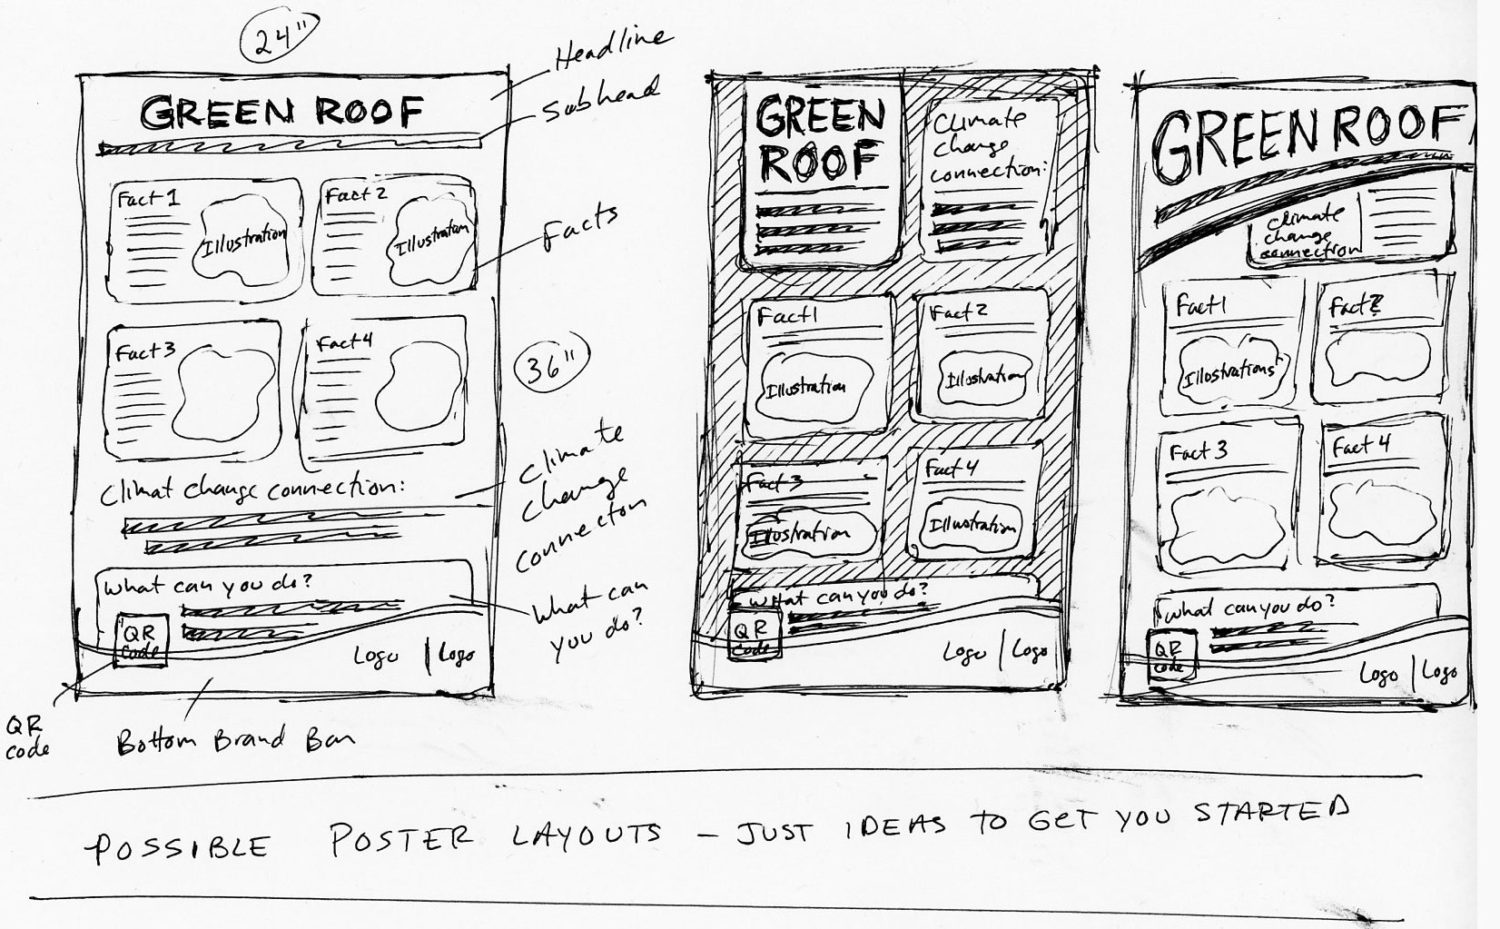 24"
Headline
Subhead
GREEN ROOF
Fact 1
Illustration
Fact 2
Illustration
Facts
Fact 3
Fact 4
36"
Climat change connection:
Climate
change
connecton
What can you do?
QR
code
Logo | Logo
What can
you do?
QR
code
Bottom Brand Bar
GREEN
ROOF
Climate
change
connection:
Fact 1
Illustration
Fact 2
Illustration
Fact 3
Illustration
Fact 4
Illustration
What can you do?
QR
code
Logo | Logo
GREEN ROOF
Climate
change
connection
Fact 1
Illustrations
Fact 2
Fact 3
Fact 4
What can you do?
QR
code
Logo | Logo
POSSIBLE POSTER LAYOUTS – JUST IDEAS TO GET YOU STARTED